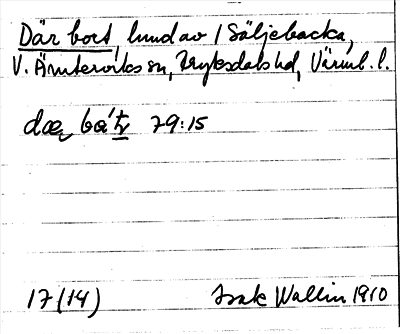 Där bort, lund av / Säljebacka,
V. Ämterviks sn, Fryksdals hd, Värml. l.
dær bo̵'tz 79:15
17 (14) Isak Wallin 1910